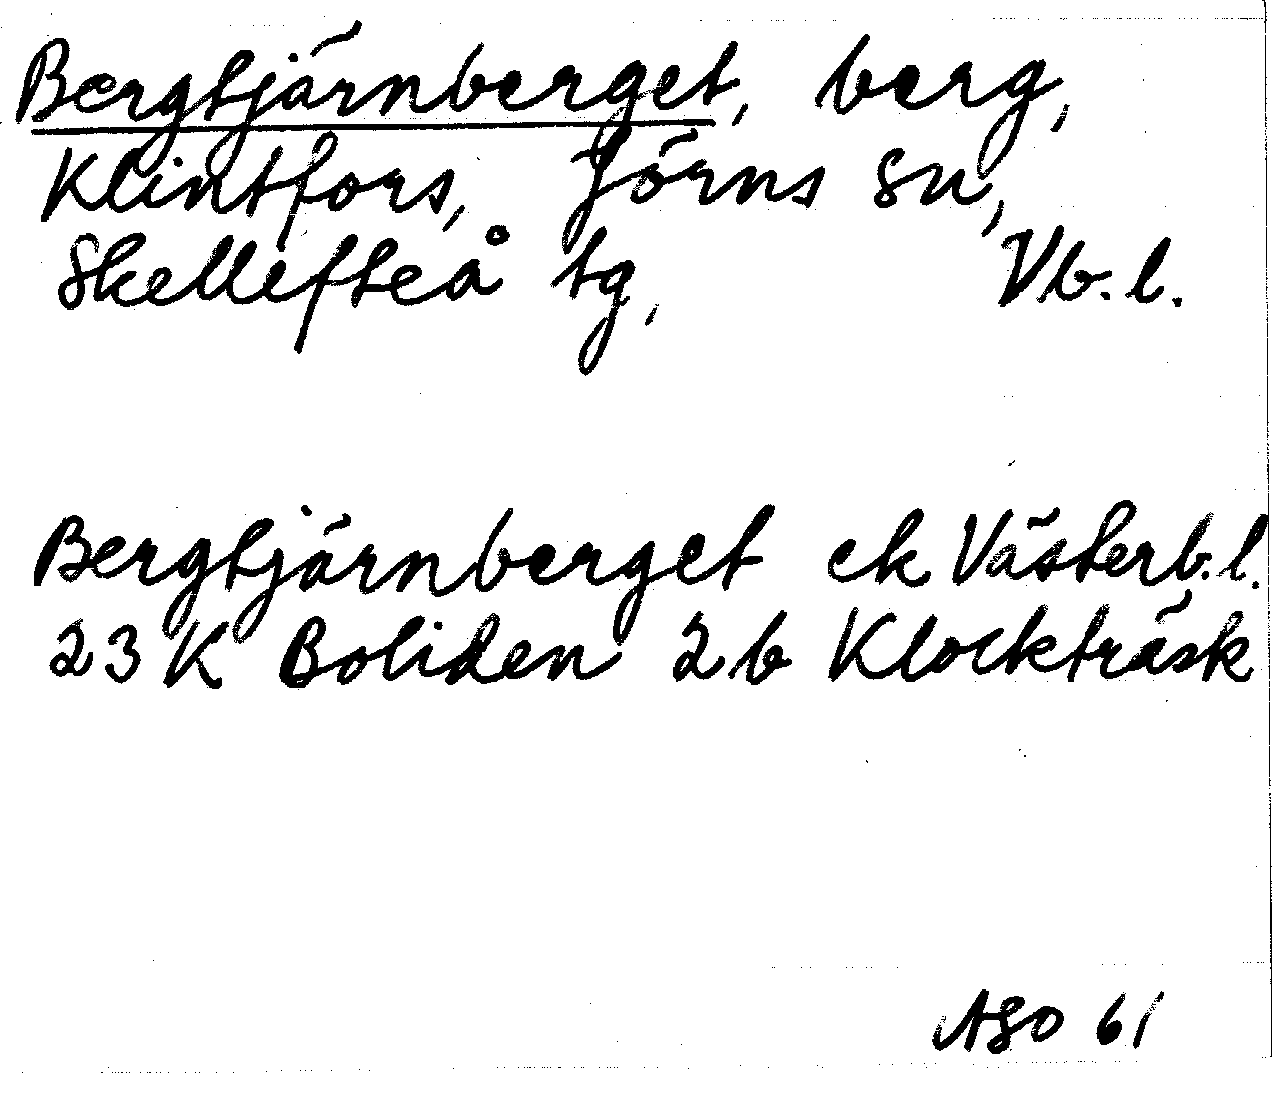 Bergtjärnberget, berg,
Klintfors, Jörns sn,
Skellefteå tg, Vb. l.
Bergtjärnberget ek Västerb. l.
23 K Boliden 2 b Klockträsk
ASO 61